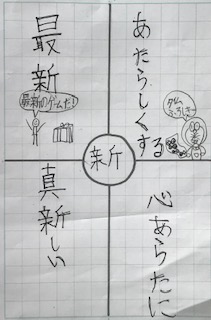 あたらしくする
タイム
ふろしき
最新
最新のゲームだ!
新
心あらたに
真新しい